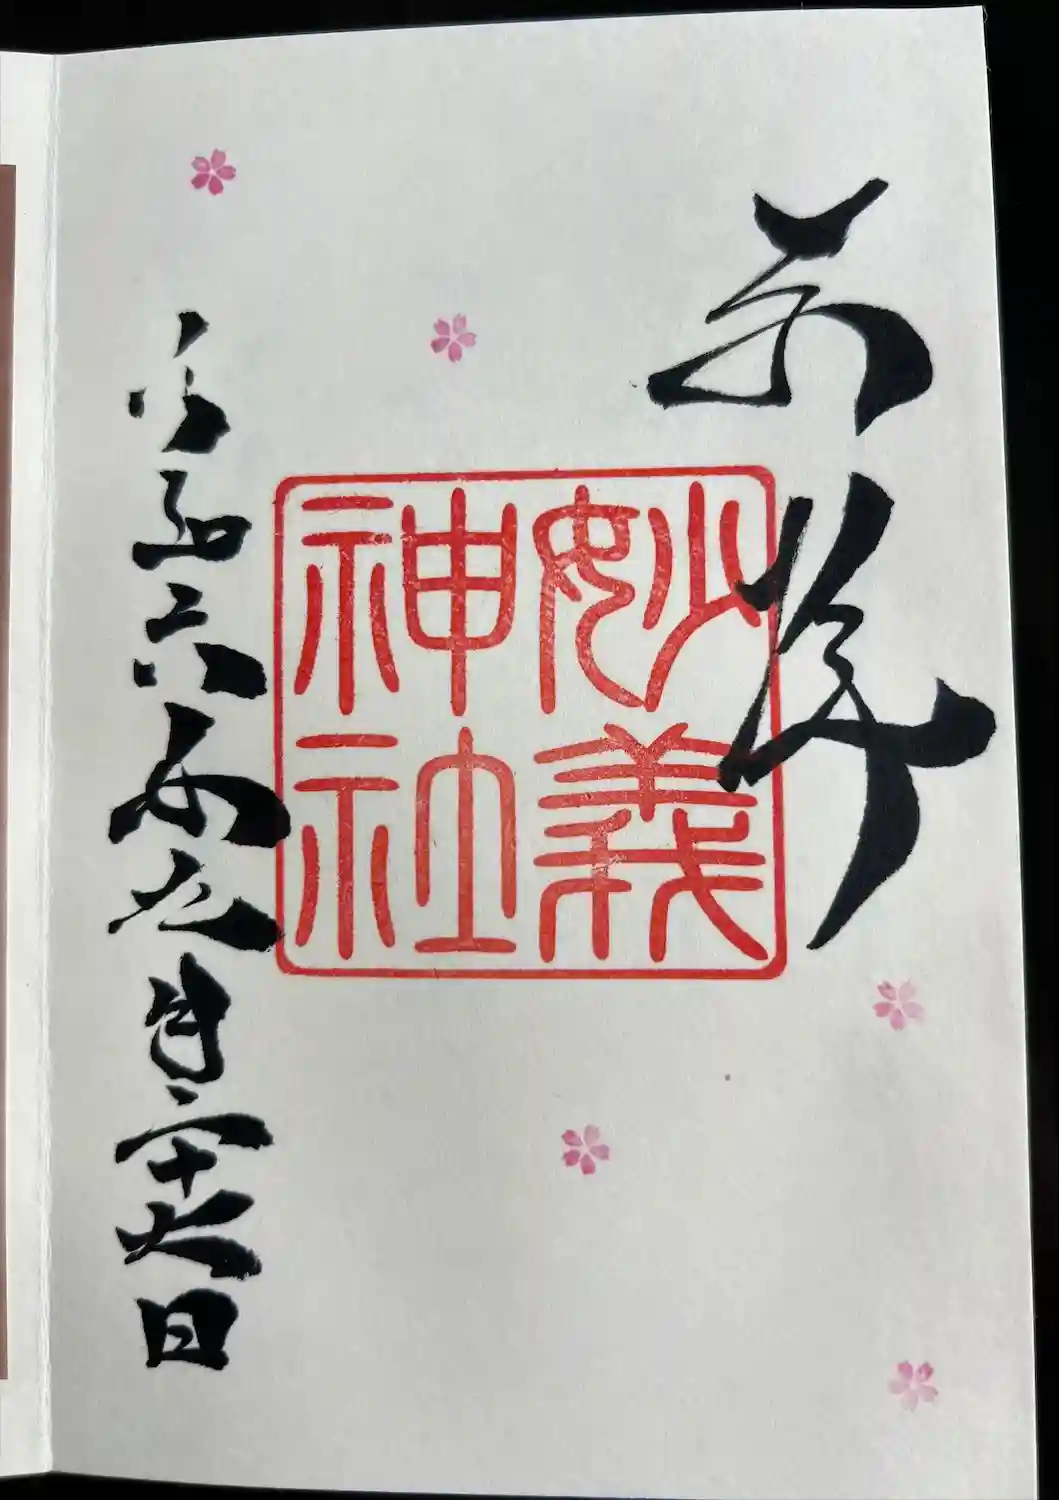 奉拝
妙義
神社
令和六年月二十日